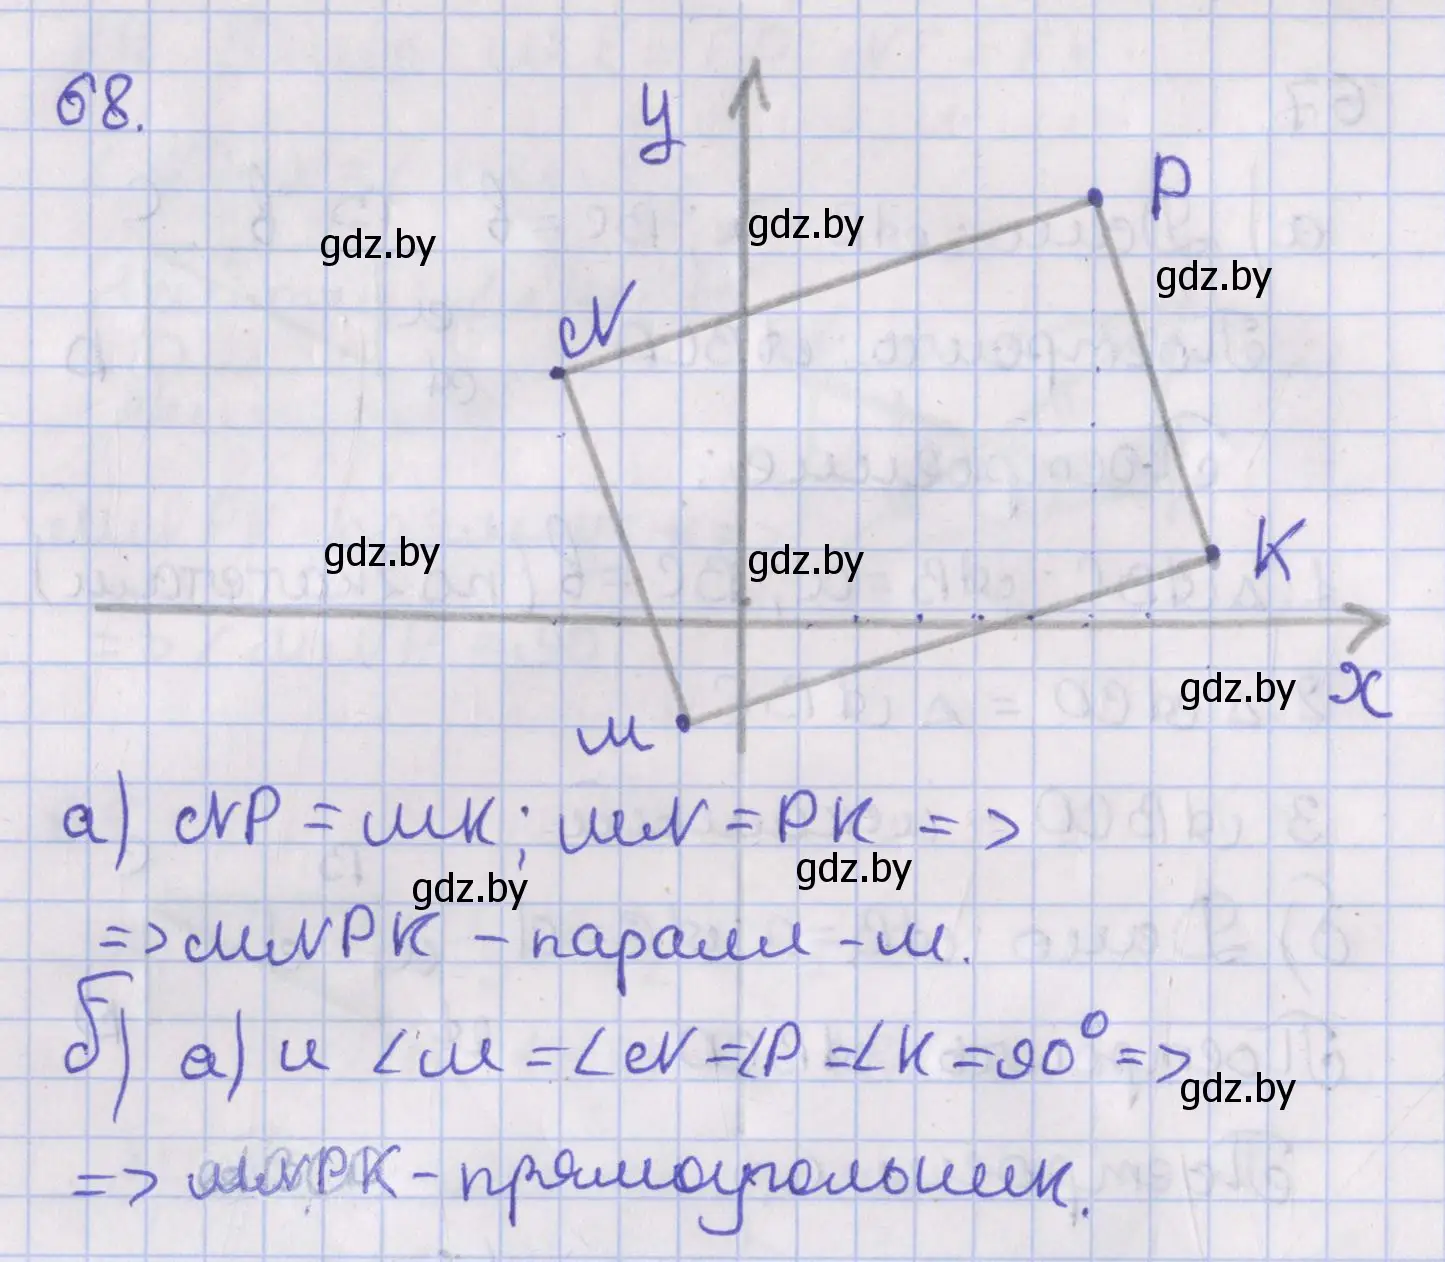 68.
y
P
gdz.by
gdz.by
gdz.by
N
K
gdz.by
gdz.by
gdz.by
x
M
а) NP = MK; MN = PK =>
gdz.by
gdz.by
=> MNPK - паралл-м.
б) а) и ∠M = ∠N = ∠P = ∠K = 90° =>
gdz.by
=> MNPK - прямоугольник.